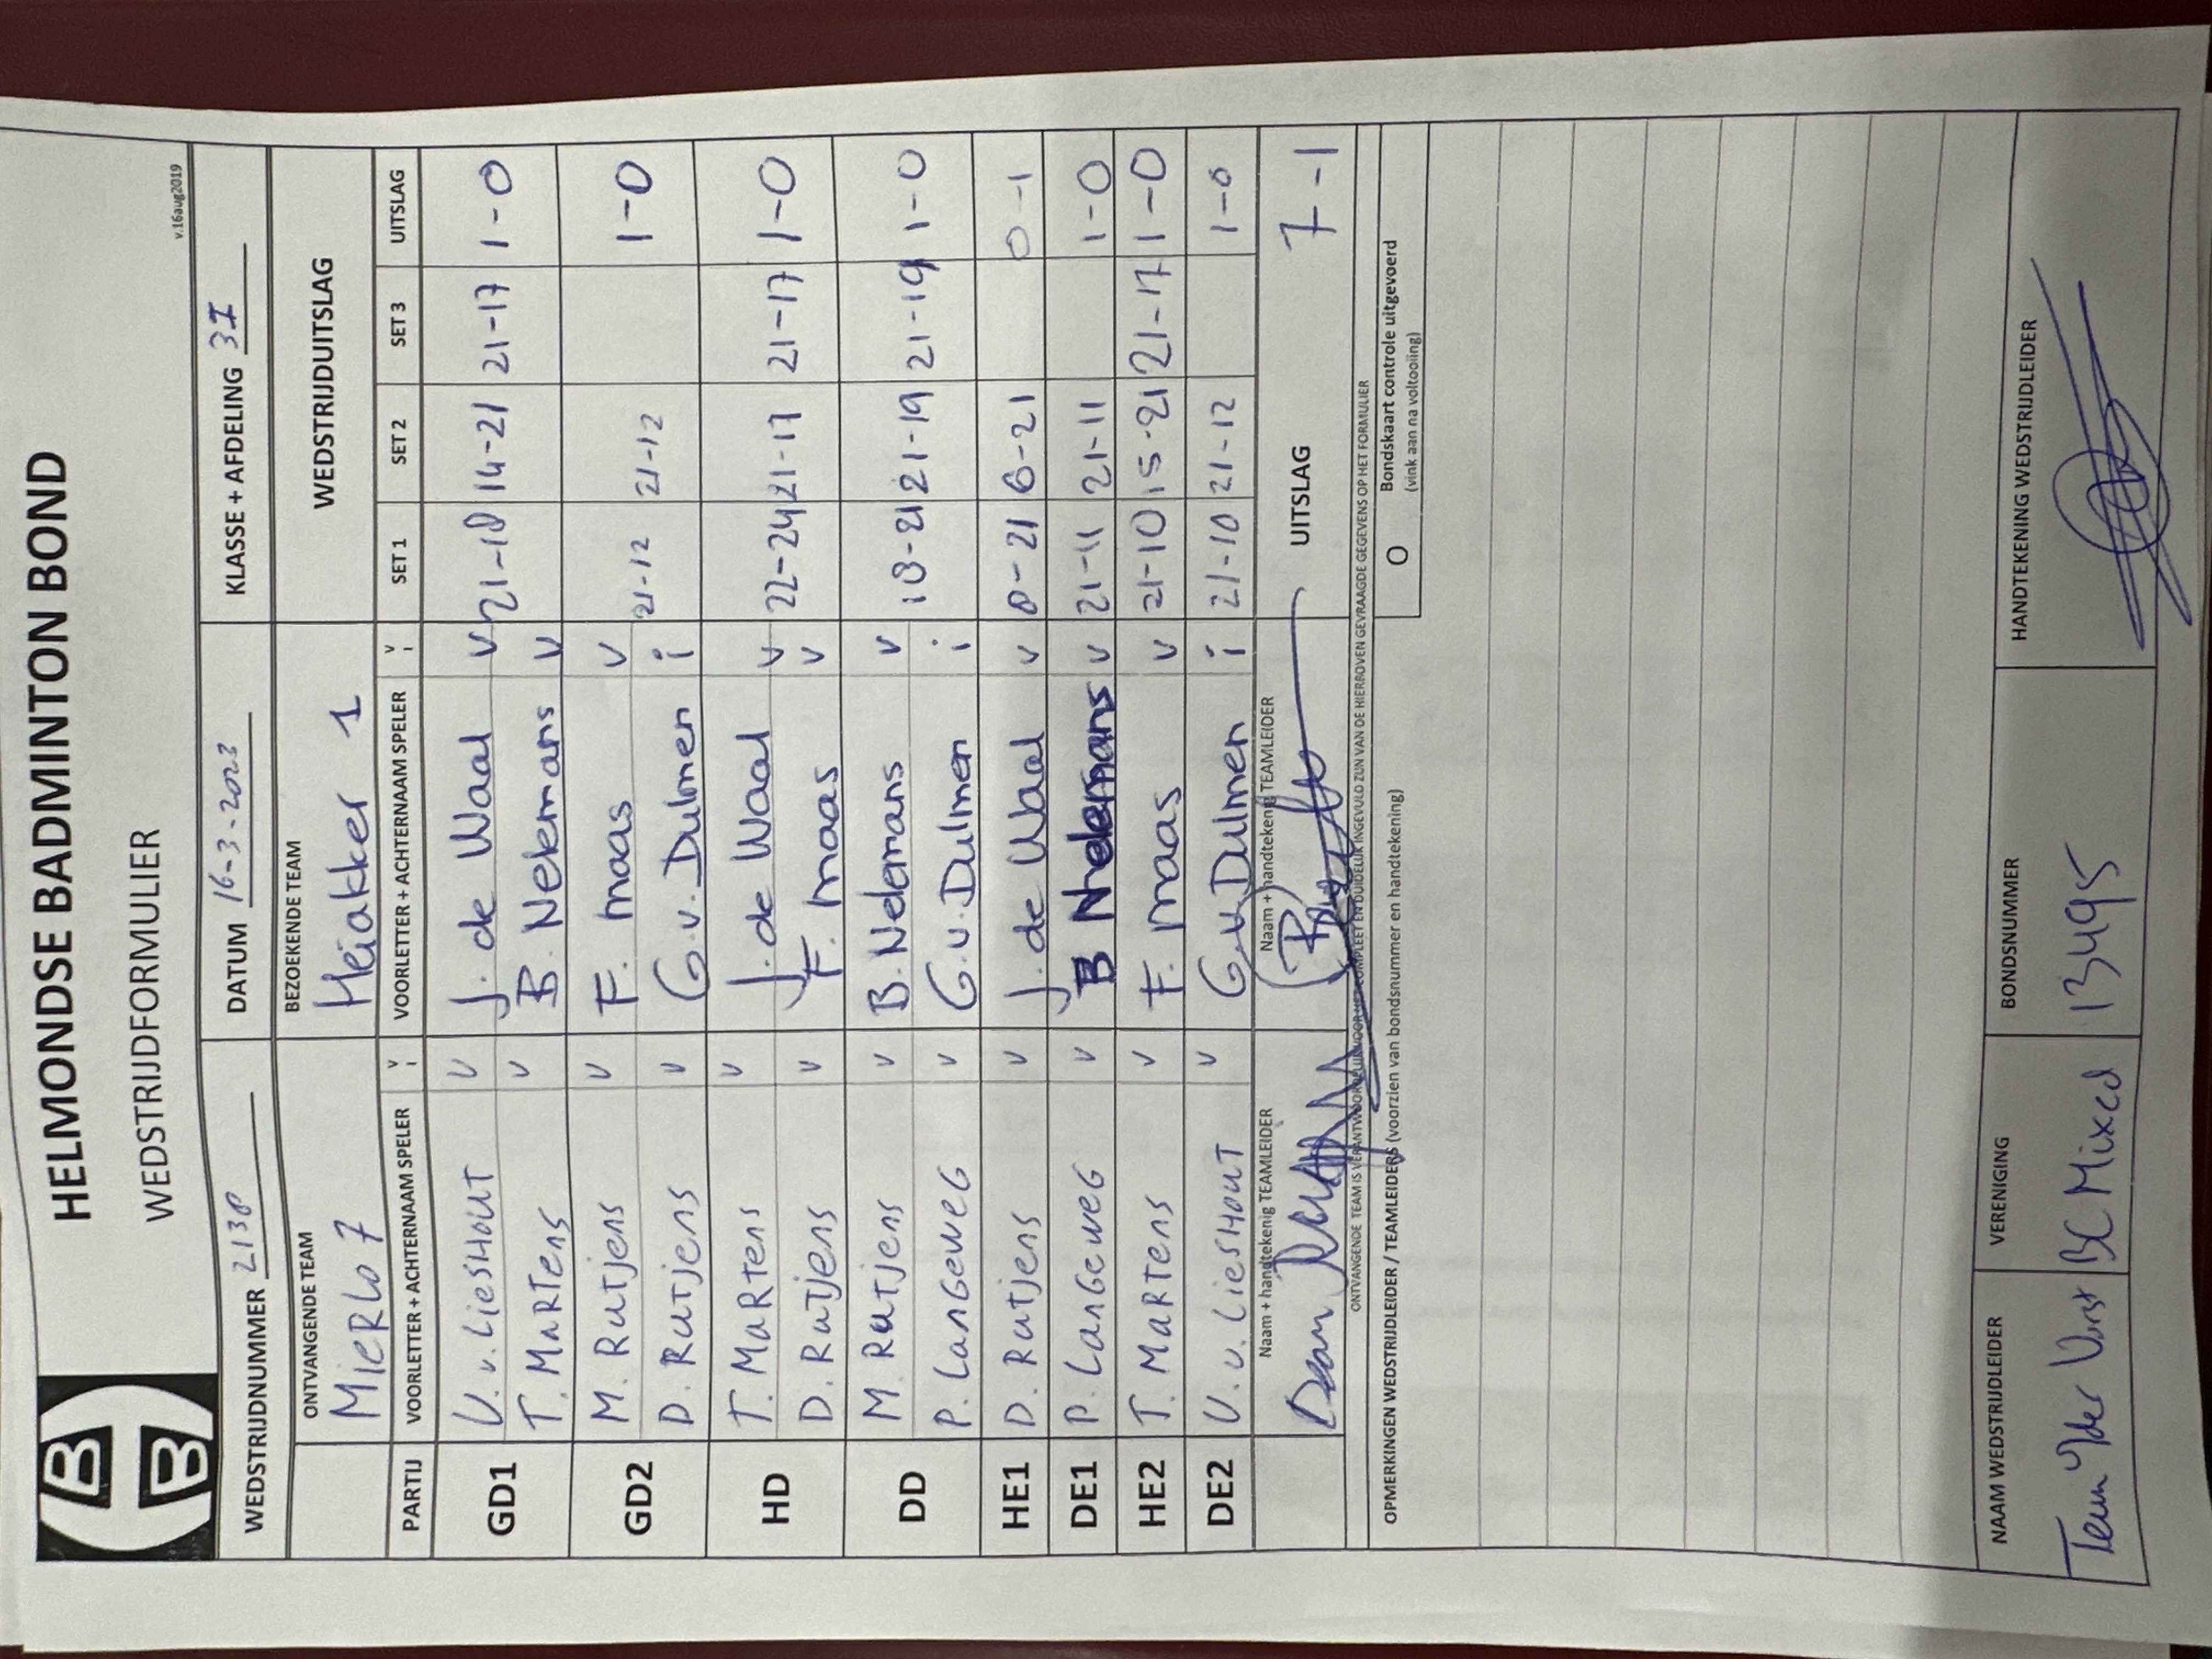 HELMONDSE BADMINTON BOND
WEDSTRIJDFORMULIER
v.16aug2019
WEDSTRIJDNUMMER 2138 DATUM 16-3-2023 KLASSE + AFDELING 3I
ONTVANGENDE TEAM BEZOEKENDE TEAM WEDSTRIJDUITSLAG
Mierlo 7 Heiakker 1
PARTIJ VOORLETTER + ACHTERNAAM SPELER V i VOORLETTER + ACHTERNAAM SPELER V i SET 1 SET 2 SET 3 UITSLAG
GD1 V. v. Lieshout v J. de Waal v 21-18 14-21 21-17 1-0
T. Martens v B. Nelemans v
GD2 M. Rutjens v F. maas v 21-12 21-12 1-0
D. Rutjens v G. v. Dulmen i
HD T. Martens v J. de Waal v 22-24 21-17 21-17 1-0
D. Rutjens v F. maas v
DD M. Rutjens v B. Nelemans v 18-21 21-19 21-19 1-0
P. Langeweg v G. v. Dulmen i
HE1 D. Rutjens v J. de Waal v 8-21 6-21 0-1
DE1 P. Langeweg v B Nelemans v 21-11 21-11 1-0
HE2 T. Martens v F. maas v 21-10 15-21 21-17 1-0
DE2 V. v. Lieshout v G. v. Dulmen i 21-10 21-12 1-0
Naam + handtekenig TEAMLEIDER Naam + handtekenig TEAMLEIDER UITSLAG 7-1
Daan
ONTVANGENDE TEAM IS VERANTWOORDELIJK VOOR HET COMPLEET EN DUIDELIJK INGEVULD ZIJN VAN DE HIERBOVEN GEVRAAGDE GEGEVENS OP HET FORMULIER
OPMERKINGEN WEDSTRIJDLEIDER / TEAMLEIDERS (voorzien van bondsnummer en handtekening) O Bondskaart controle uitgevoerd
(vink aan na voltooiing)
NAAM WEDSTRIJDLEIDER VERENIGING BONDSNUMMER HANDTEKENING WEDSTRIJDLEIDER
Teun v der Vorst BC Mixed 13495